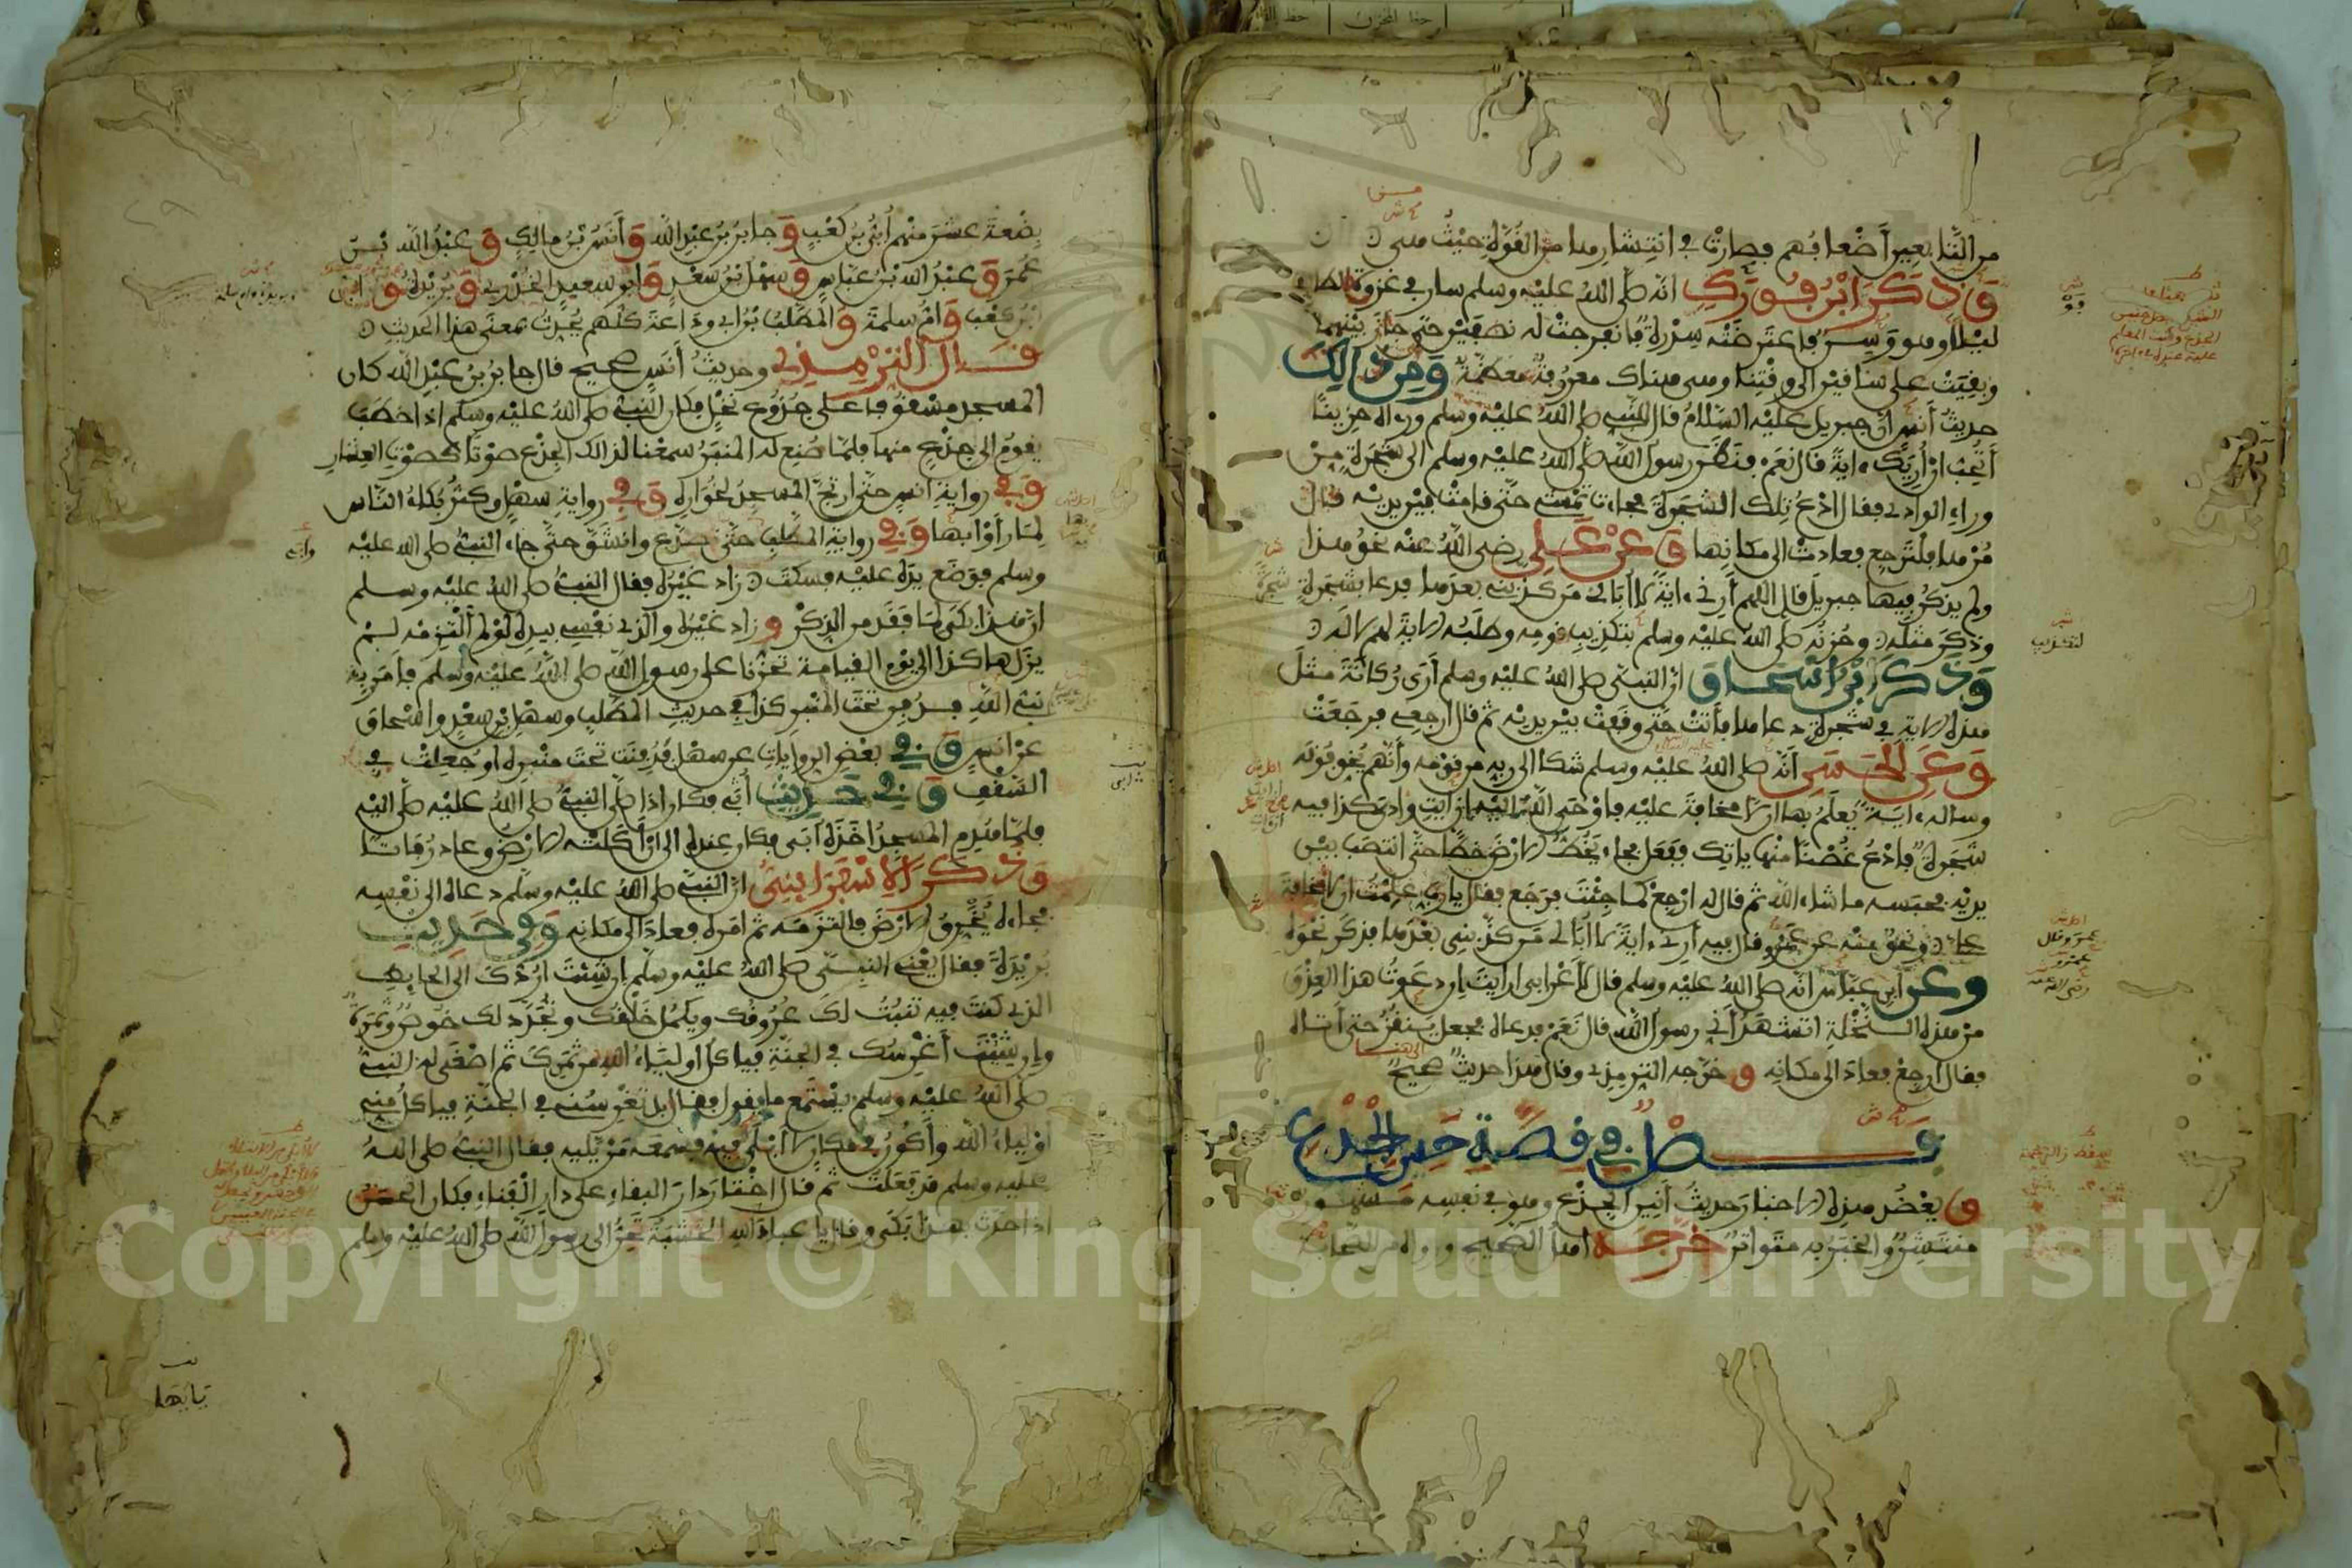 من التابعين أضعافهم فصارت في انتشارها من القوة حيث هي
وذكر ابن فورك انه صلى الله عليه وسلم سار في غزوة الطائف
ليلا وهو وسن فاعترضته سدرة فانفرجت له نصفين حتى جاز بينهما
وبقيت على ساقين الى وقتنا وهي هناك معروفة معظمة ومن ذالك
حديث أنس ان جبريل عليه السلام قال للنبي صلى الله عليه وسلم ورءاه حزينا
أتحب ان أريك ءاية قال نعم فنظر رسول الله صلى الله عليه وسلم الى شجرة من
وراء الوادي فقال ادع تلك الشجرة فجاءت تمشي حتى قامت بين يديه قال
مرها فلترجع فعادت الى مكانها وعن علي رضي الله عنه نحو هذا
ولم يذكر فيها جبريل قال اللهم أرني ءاية لا أبالي من كذبني بعدها فدعا بشجرة
وذكر مثله وحزنه صلى الله عليه وسلم بتكذيب قومه وطلبه الاية لهم لا له
وذكر ابن اسحاق ان النبي صلى الله عليه وسلم أرى ركانة مثل
هذه الاية في شجرة دعاها فأتت حتى وقفت بين يديه ثم قال ارجعي فرجعت
وعن الحسن أنه صلى الله عليه وسلم شكا الى ربه من قومه وأنهم يخوفونه
وساله ءاية يعلم بها ان لا مخافة عليه فأوحى الله اليه ان ايت وادي كذا فيه
شجرة فادع غصنا منها ياتك ففعل فجاء يخط الارض خطا حتى انتصب بين
يديه فحبسه ما شاء الله ثم قال له ارجع كما جئت فرجع فقال يا رب علمت ان لا مخافة
علي ونحو منه عن عمر وقال فيه أرني ءاية لا أبالي من كذبني بعدها فذكر نحوه
وعن ابن عباس انه صلى الله عليه وسلم قال لأعرابي ارايت ان دعوت هذا العذق
من هذه النخلة اتشهد أني رسول الله قال نعم فدعاه فجعل ينقز حتى أتاه
فقال ارجع فعاد الى مكانه وخرجه الترمذي وقال هذا حديث صحيح
فصل في قصة حنين الجذع
ويعضد هذه الاخبار حديث أنين الجذع وهو في نفسه مشهور
منتشر والخبر به متواتر خرجه اهل الصحيح ورواه من الصحابة
بضعة عشر منهم أبي بن كعب وجابر بن عبد الله وأنس بن مالك وعبد الله بن
عمر وعبد الله بن عباس وسهل بن سعد وابو سعيد الخدري وبريدة
وأم سلمة والمطلب بن ابي وداعة كلهم يحدث بمعنى هذا الحديث
قال الترمذي وحديث أنس صحيح قال جابر بن عبد الله كان
المسجد مسقوفا على جذوع نخل فكان النبي صلى الله عليه وسلم اذا خطب
يقوم الى جذع منها فلما صنع له المنبر سمعنا لذالك الجذع صوتا كصوت العشار
وفي رواية انس حتى ارتج المسجد لخواره وفي رواية سهل وكثر بكاء الناس
لما رأوا بها وفي رواية المطلب حتى تصدع وانشق حتى جاء النبي صلى الله عليه
وسلم فوضع يده عليه فسكت زاد غيره فقال النبي صلى الله عليه وسلم
ان هذا بكى لما فقد من الذكر وزاد غيره والذي نفسي بيده لو لم ألتزمه لم
يزل هاكذا الى يوم القيامة تحزنا على رسول الله صلى الله عليه وسلم فأمر به
نبي الله فدفن تحت المنبر كذا في حديث المطلب وسهل بن سعد واسحاق
عن انس وفي بعض الروايات عن سهل فدفنت تحت منبره او جعلت في
السقف وفي حديث أبي فكان اذا صلى النبي صلى الله عليه صلى اليه
فلما هدم المسجد اخذه أبي فكان عنده الى ان أكلته الارض وعاد رفاتا
وذكر الاسفرايني ان النبي صلى الله عليه وسلم دعاه الى نفسه
فجاءه يخرق الارض فالتزمه ثم امره فعاد الى مكانه وفي حديث
بريدة فقال يعني النبي صلى الله عليه وسلم ان شئت اردك الى الحايط
الذي كنت فيه تنبت لك عروقك ويكمل خلقك ويجدد لك خوص وثمرة
وان شئت أغرسك في الجنة فياكل اولياء الله من ثمرك ثم اصغى له النبي
صلى الله عليه وسلم يستمع ما يقول فقال بل تغرسني في الجنة فياكل مني
اولياء الله وأكون في مكان لا أبلى فيه فسمعه من يليه فقال النبي صلى الله
عليه وسلم قد فعلت ثم قال اختار دار البقاء على دار الفناء فكان الحسن
اذا حدث بهذا بكى وقال يا عباد الله الخشبة تحن الى رسول الله صلى الله عليه وسلم
يايها
Copyright © King Saud University